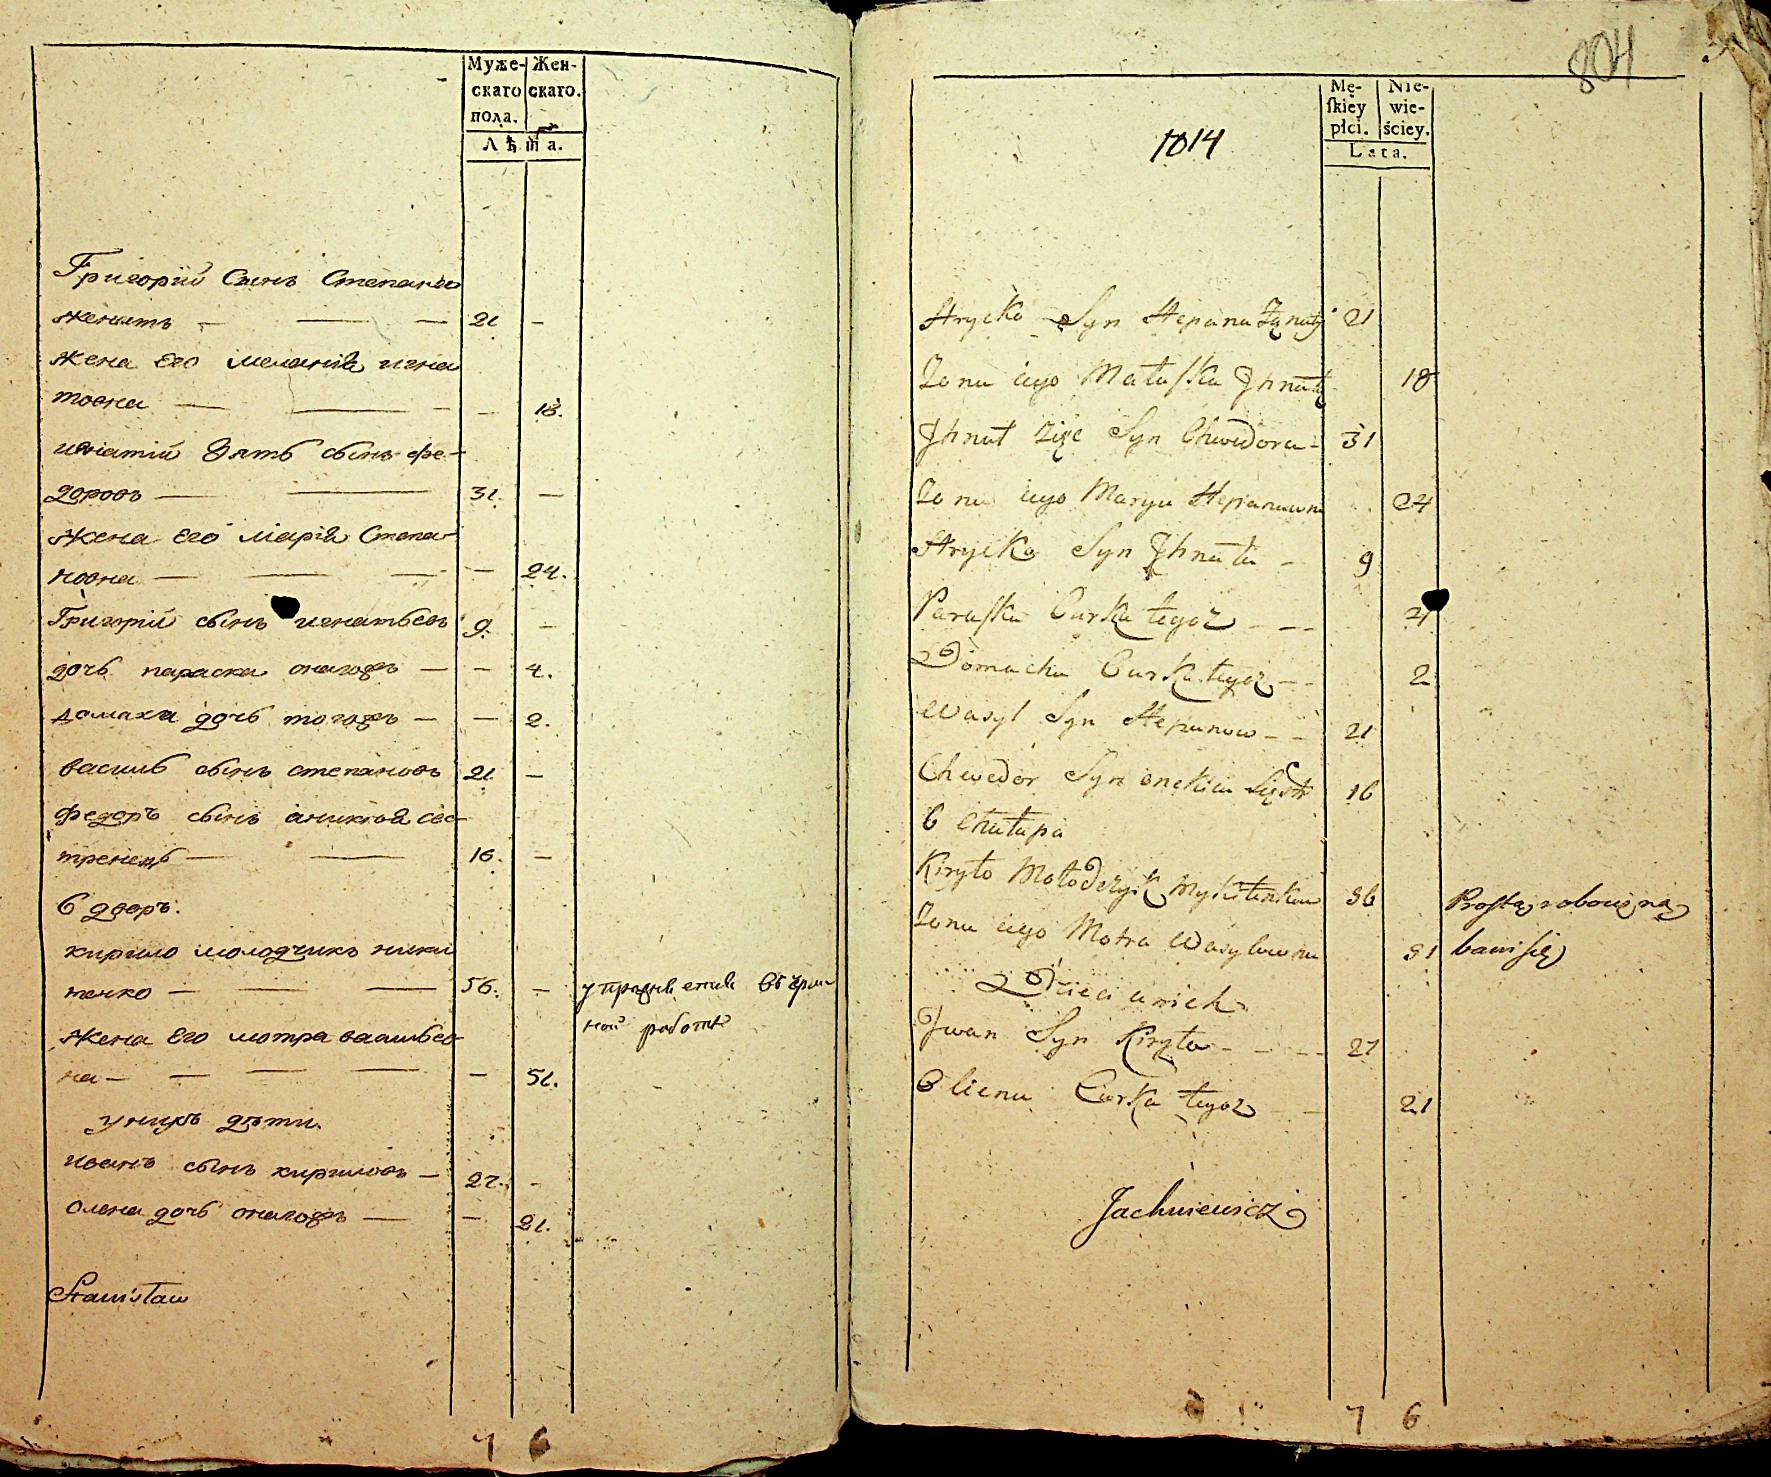 Муже- Жен-
скаго скаго.
пола.
Лѣта.
Григорий Сынъ Степана
женатъ — — — 21 —
жена Его мелания игна
товна — — — — 18.
игнатий зять сынъ фе-
доровъ — — 31. —
жена Его мария Степа-
новна — — — — 24.
Григорий сынъ игнатьевъ 9. —
дочь параска онагожъ — — 4.
домаха дочь тогожъ — — 2.
василь сынъ степановъ 21 —
федоръ сынъ аникия сес-
тренецъ — — 16. —
6 дворъ.
кирило молодчикъ ники
тенко — — — 56. — упражняется въ чер
ной работѣ
жена Его мотра васильев
на — — — — — 51.
у нихъ дѣти.
иванъ сынъ кириловъ — 27. —
олена дочь онагожъ — — 21.
Stanisław
7 6
804
1014
Mę- Nie-
ſkiey wie-
płci. ściey.
Lata.
Hrycko Syn Stepana Żonaty 21
Żona iego Małaſka Jhnat 18
Jhnat Zięć Syn Chwedora 31
Żona iego Marya Stepanowna 24
Hrycko Syn Jhnata — 9
Paraſka Curka tegoż — — 4
Domacha Curka tegoż — — 2
Wasyl Syn Stepanow — — 21
Chwedor Syn Onekiia Siestr 16
6 Chałupa
Kiryło Mołodczyk Mykitenkow 56 Prostą robocizną
Żona iego Motra Wasylowna 51 bawi się
Dzieci u nich
Jwan Syn Kiryła — — — 27
Oliena Curka tegoż — — 21
Jachniewicz
7 6